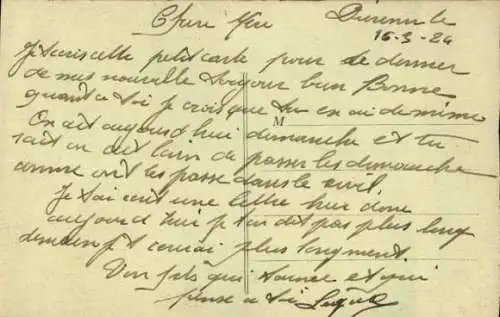 Chere Mere Duren le
16-3-24
Je t'ecris cette petit carte pour te donner
de mes nouvelle toujour bon Bonne
quant a toi je crois que tu en ai de même
M
On ait aujourd'hui dimanche et tu
sait on ait loin de passer les dimanche
comme ont les passe dans le civil.
Je t'ai ecrit une lettre hier donc
aujourd hui je t'en dit pas plus long
demain je t ecrirai plus longment.
Ton fils qui t'aime et qui
pense a toi